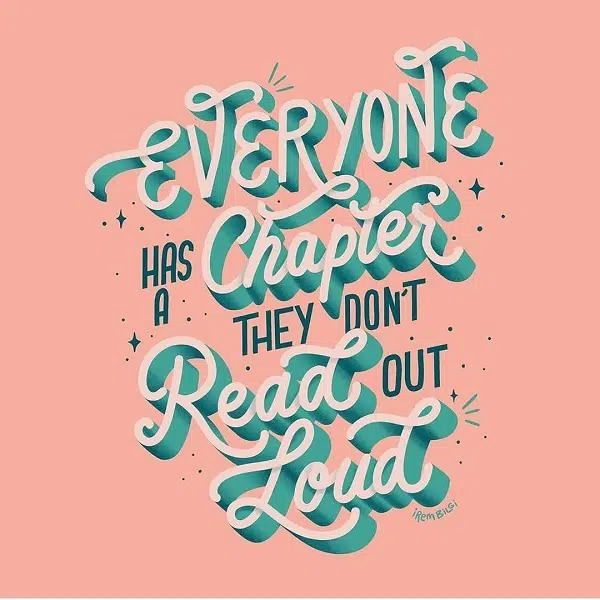 EVERYONE
HAS A Chapter
THEY DON'T
Read OUT
Loud
iREM BiLGi